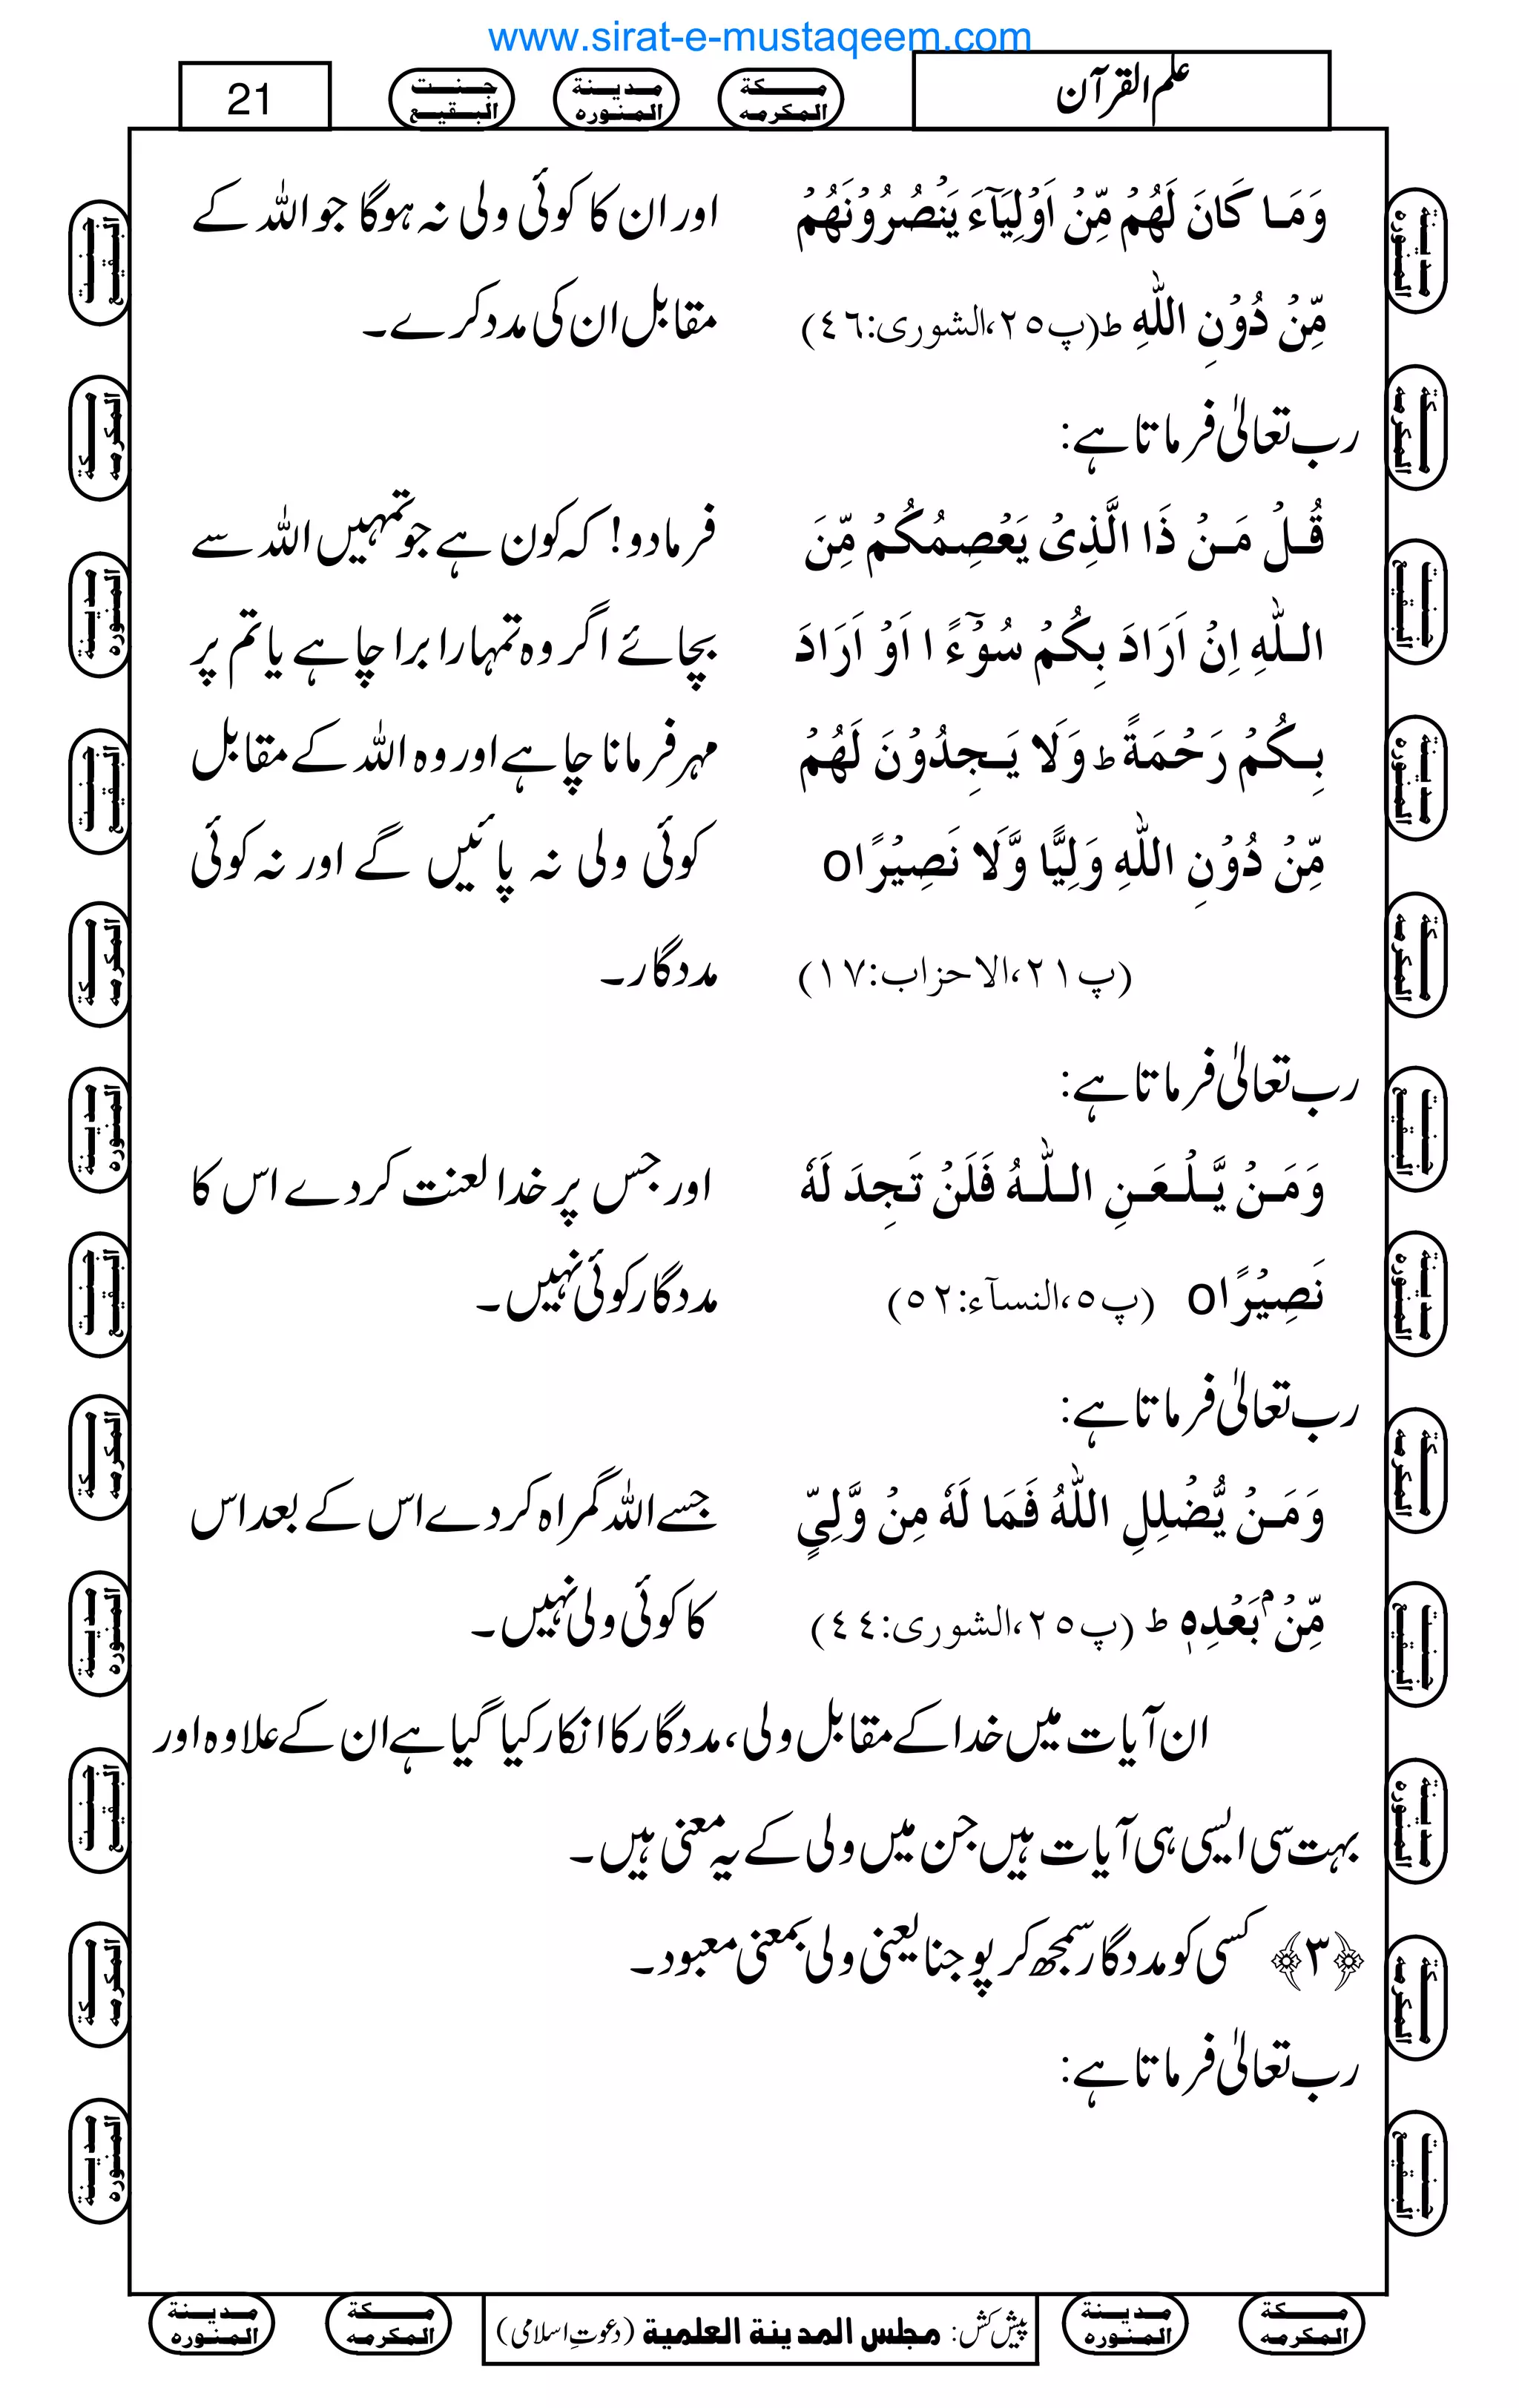 www.sirat-e-mustaqeem.com
علم القرآن
مکة المکرمه
مدینة المنوره
جنت البقیع
21
وَمَا كَانَ لَهُمْ مِّنْ اَوْلِيَآءَ يَنْصُرُوْنَهُمْ اور ان کا کوئی ولی نہ ہوگا جو اللہ کے
مِّنْ دُوْنِ اللّٰهِ ط(پ٢٥،الشوری:٤٦) مقابل ان کی مدد کرے۔
رب تعالیٰ فرماتا ہے:
قُلْ مَنْ ذَا الَّذِىْ يَعْصِمُكُمْ مِّنَ فرمادو! کہ کون ہے جو تمہیں اللہ سے
اللّٰهِ اِنْ اَرَادَ بِكُمْ سُوْٓءًا اَوْ اَرَادَ بچائے اگر وہ تمہارا برا چاہے یا تم پر
بِكُمْ رَحْمَةً ط وَلَا يَجِدُوْنَ لَهُمْ مہر فرمانا چاہے اور وہ اللہ کے مقابل
مِّنْ دُوْنِ اللّٰهِ وَلِيًّا وَّلَا نَصِيْرًاo کوئی ولی نہ پائیں گے اور نہ کوئی
(پ٢١،الاحزاب:١٧) مددگار۔
رب تعالیٰ فرماتا ہے:
وَمَنْ يَّلْعَنِ اللّٰهُ فَلَنْ تَجِدَ لَهٗ اور جس پر خدا لعنت کردے اس کا
نَصِيْرًاo (پ٥،النسآء:٥٢) مددگار کوئی نہیں۔
رب تعالیٰ فرماتا ہے:
وَمَنْ يُّضْلِلِ اللّٰهُ فَمَا لَهٗ مِنْ وَّلِيٍّ جسے اللہ گمراہ کردے اس کے بعد اس
مِّنْۢ بَعْدِهٖ ط (پ٢٥،الشوری:٤٤) کا کوئی ولی نہیں۔
ان آیات میں خدا کے مقابل ولی، مددگار کا انکار کیا گیا ہے ان کے علاوہ اور
بہت سی ایسی ہی آیات ہیں جن میں ولی کے یہ معنی ہیں۔
﴿٣﴾ کسی کو مددگار سمجھ کر پوجنا یعنی ولی بمعنی معبود۔
رب تعالیٰ فرماتا ہے:
مکة المکرمه
مدینة المنوره
پیش کش: مجلس المدینة العلمیة (دعوتِ اسلامی)
مکة المکرمه
مدینة المنوره